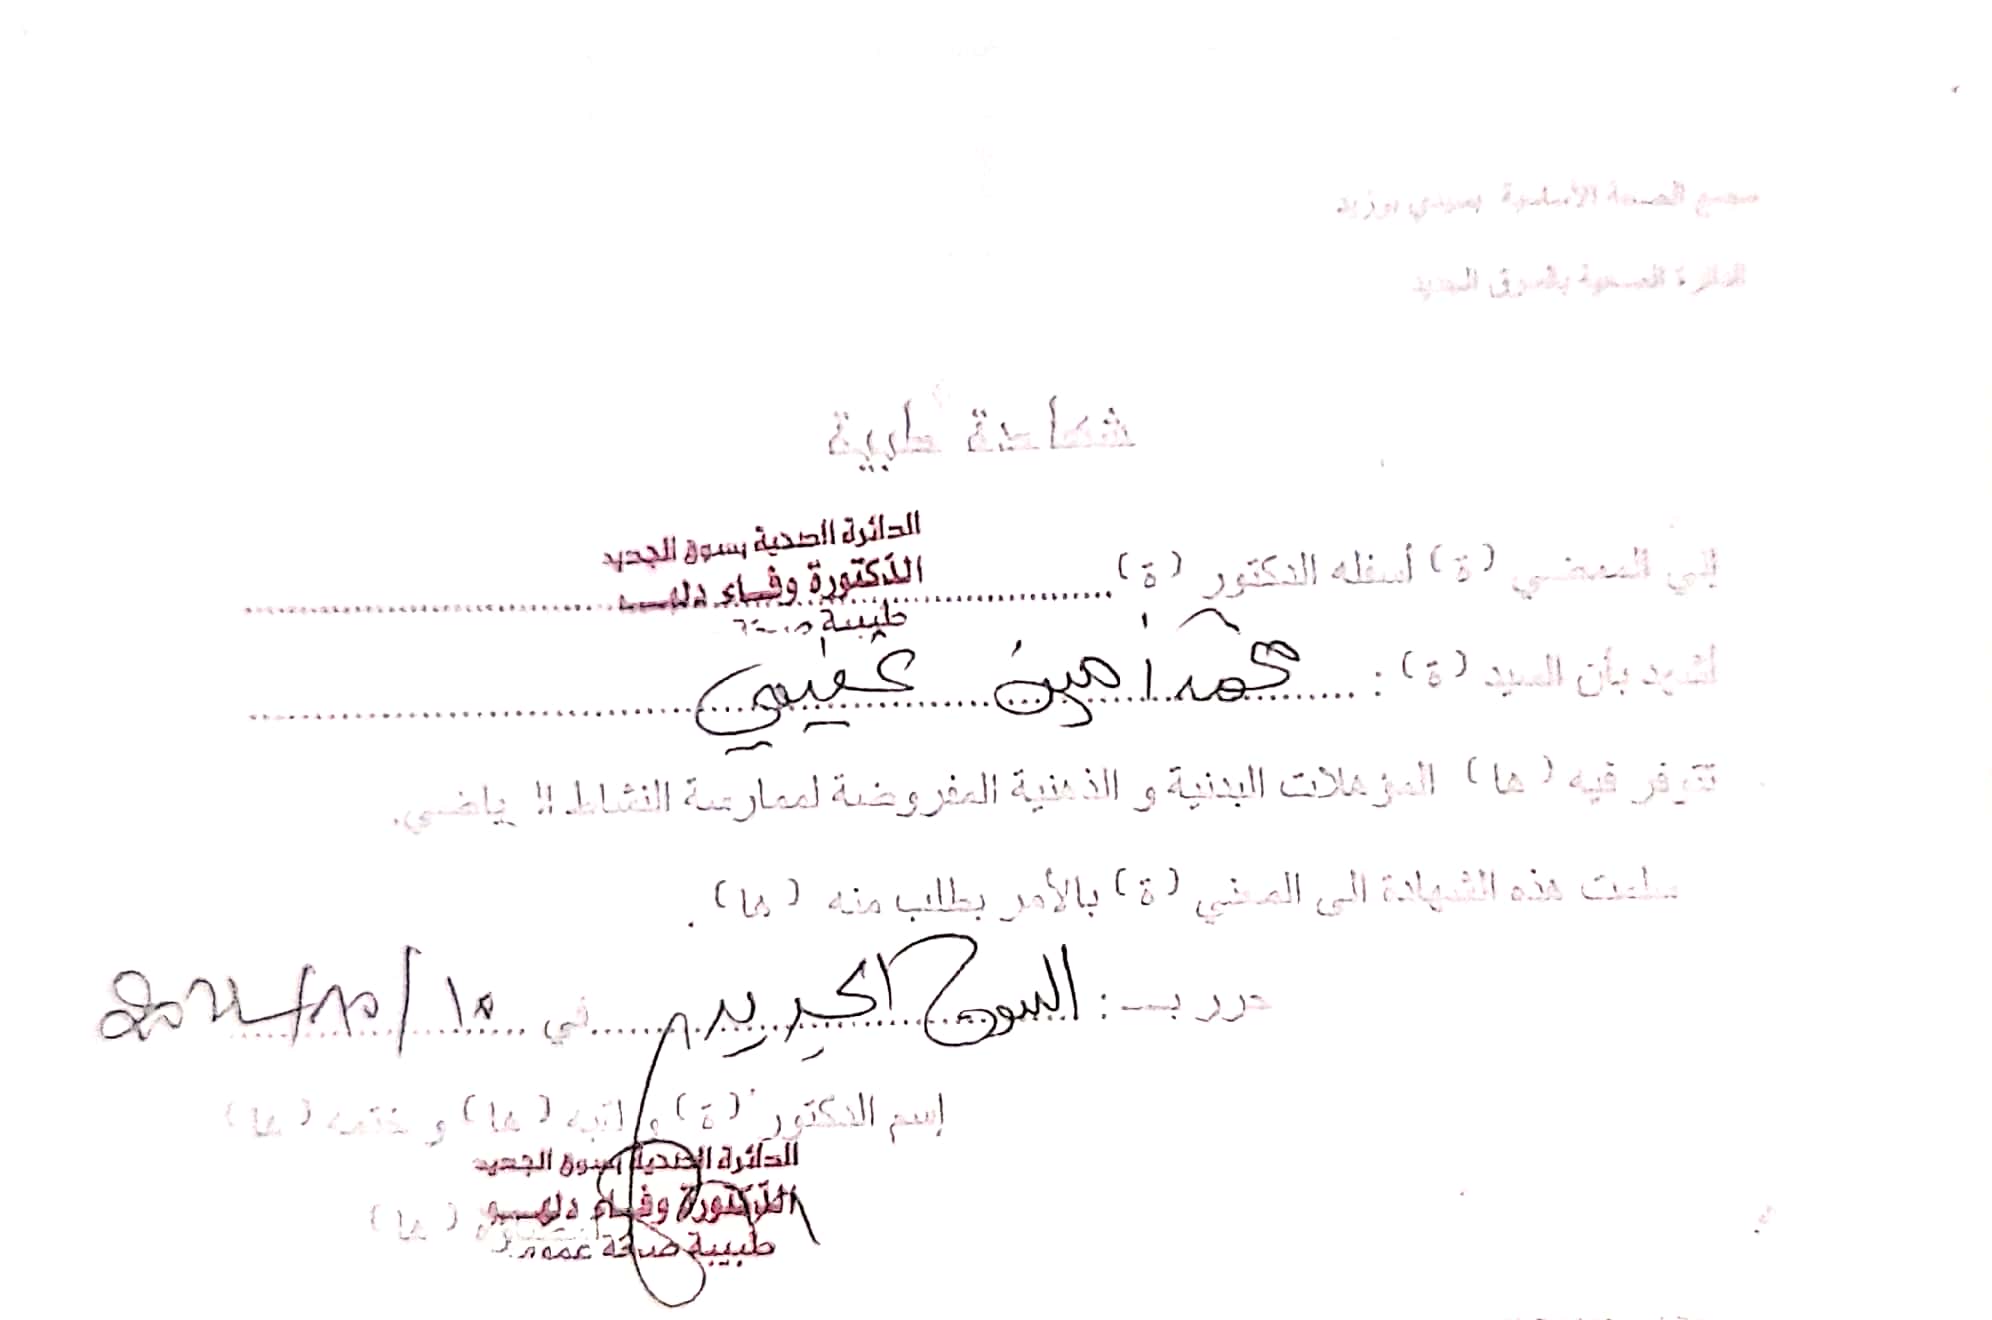 مجمع الصحة الأساسية بسيدي بوزيد
الدائرة الصحية بالسوق الجديد
شهادة طبية
الدائرة الصحية بسوق الجديد
إني الممضي (ة) أسفله الدكتور (ة) الدكتورة وفاء
طبيبة
أشهد بأن السيد (ة) : محمد أمين
تتوفر فيه (ها) المؤهلات البدنية و الذهنية المفروضة لممارسة النشاط الرياضي.
سلمت هذه الشهادة الى المعني (ة) بالأمر بطلب منه (ها) .
حرر بـ : السوق الجديد في
إسم الدكتور (ة) و لقبه (ها) و ختمه (ها)
الدائرة الصحية بسوق الجديد
الدكتورة وفاء
(ها)
طبيبة صحة